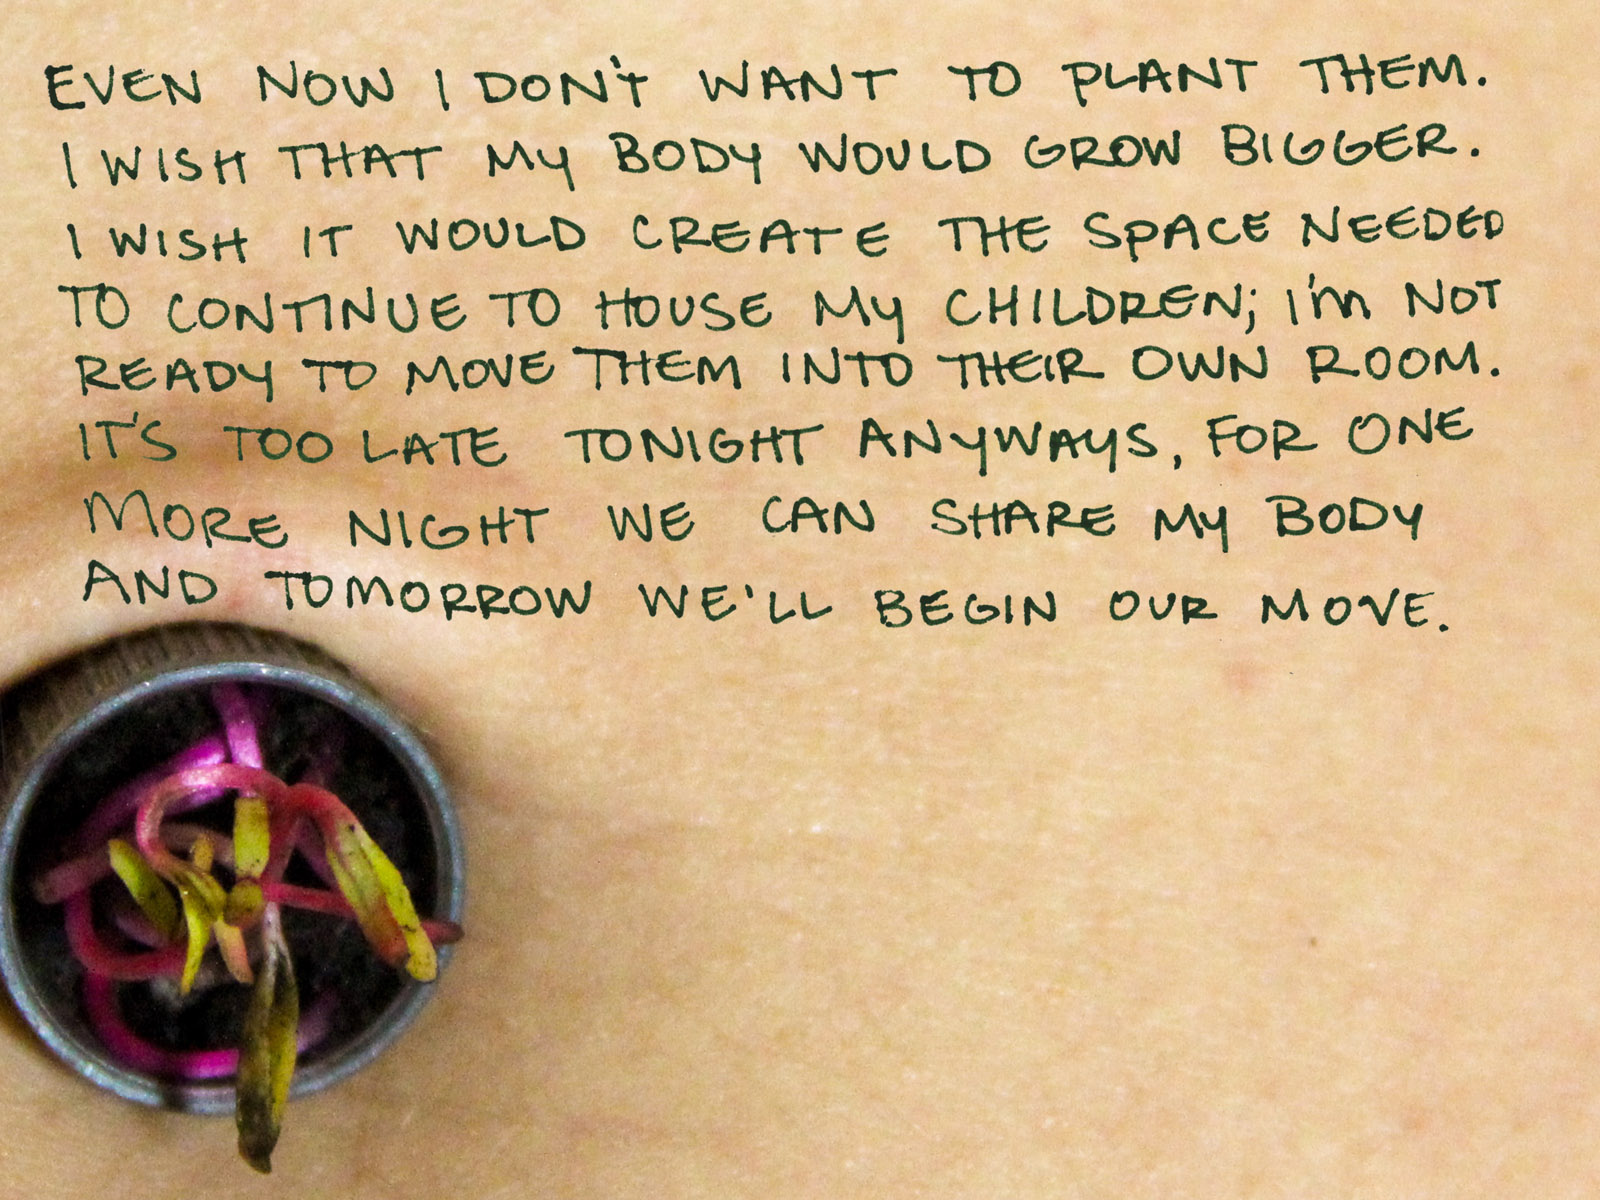 EVEN NOW I DON'T WANT TO PLANT THEM.
I WISH THAT MY BODY WOULD GROW BIGGER.
I WISH IT WOULD CREATE THE SPACE NEEDED
TO CONTINUE TO HOUSE MY CHILDREN; I'M NOT
READY TO MOVE THEM INTO THEIR OWN ROOM.
IT'S TOO LATE TONIGHT ANYWAYS, FOR ONE
MORE NIGHT WE CAN SHARE MY BODY
AND TOMORROW WE'LL BEGIN OUR MOVE.